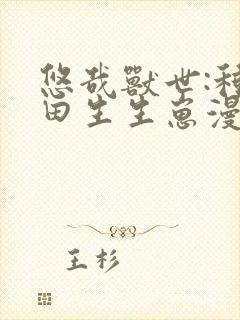 悠哉獸世:種
田生生崽漫
王杉